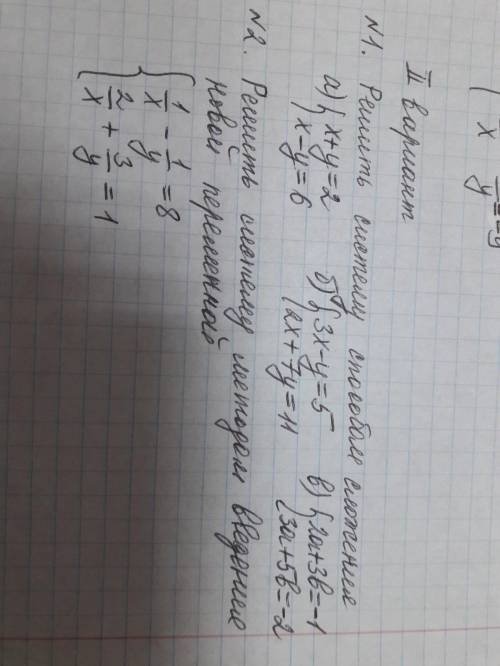 II вариант
N1. Решить систему способом сложения
а) { x+y=2 б) { 3x-y=5 в) { 2a+3b=-1
x-y=6 2x+7y=11 3a+5b=-2
N2. Решить систему методом введения
новой переменной
{ 1/x - 1/y = 8
2/x + 3/y = 1